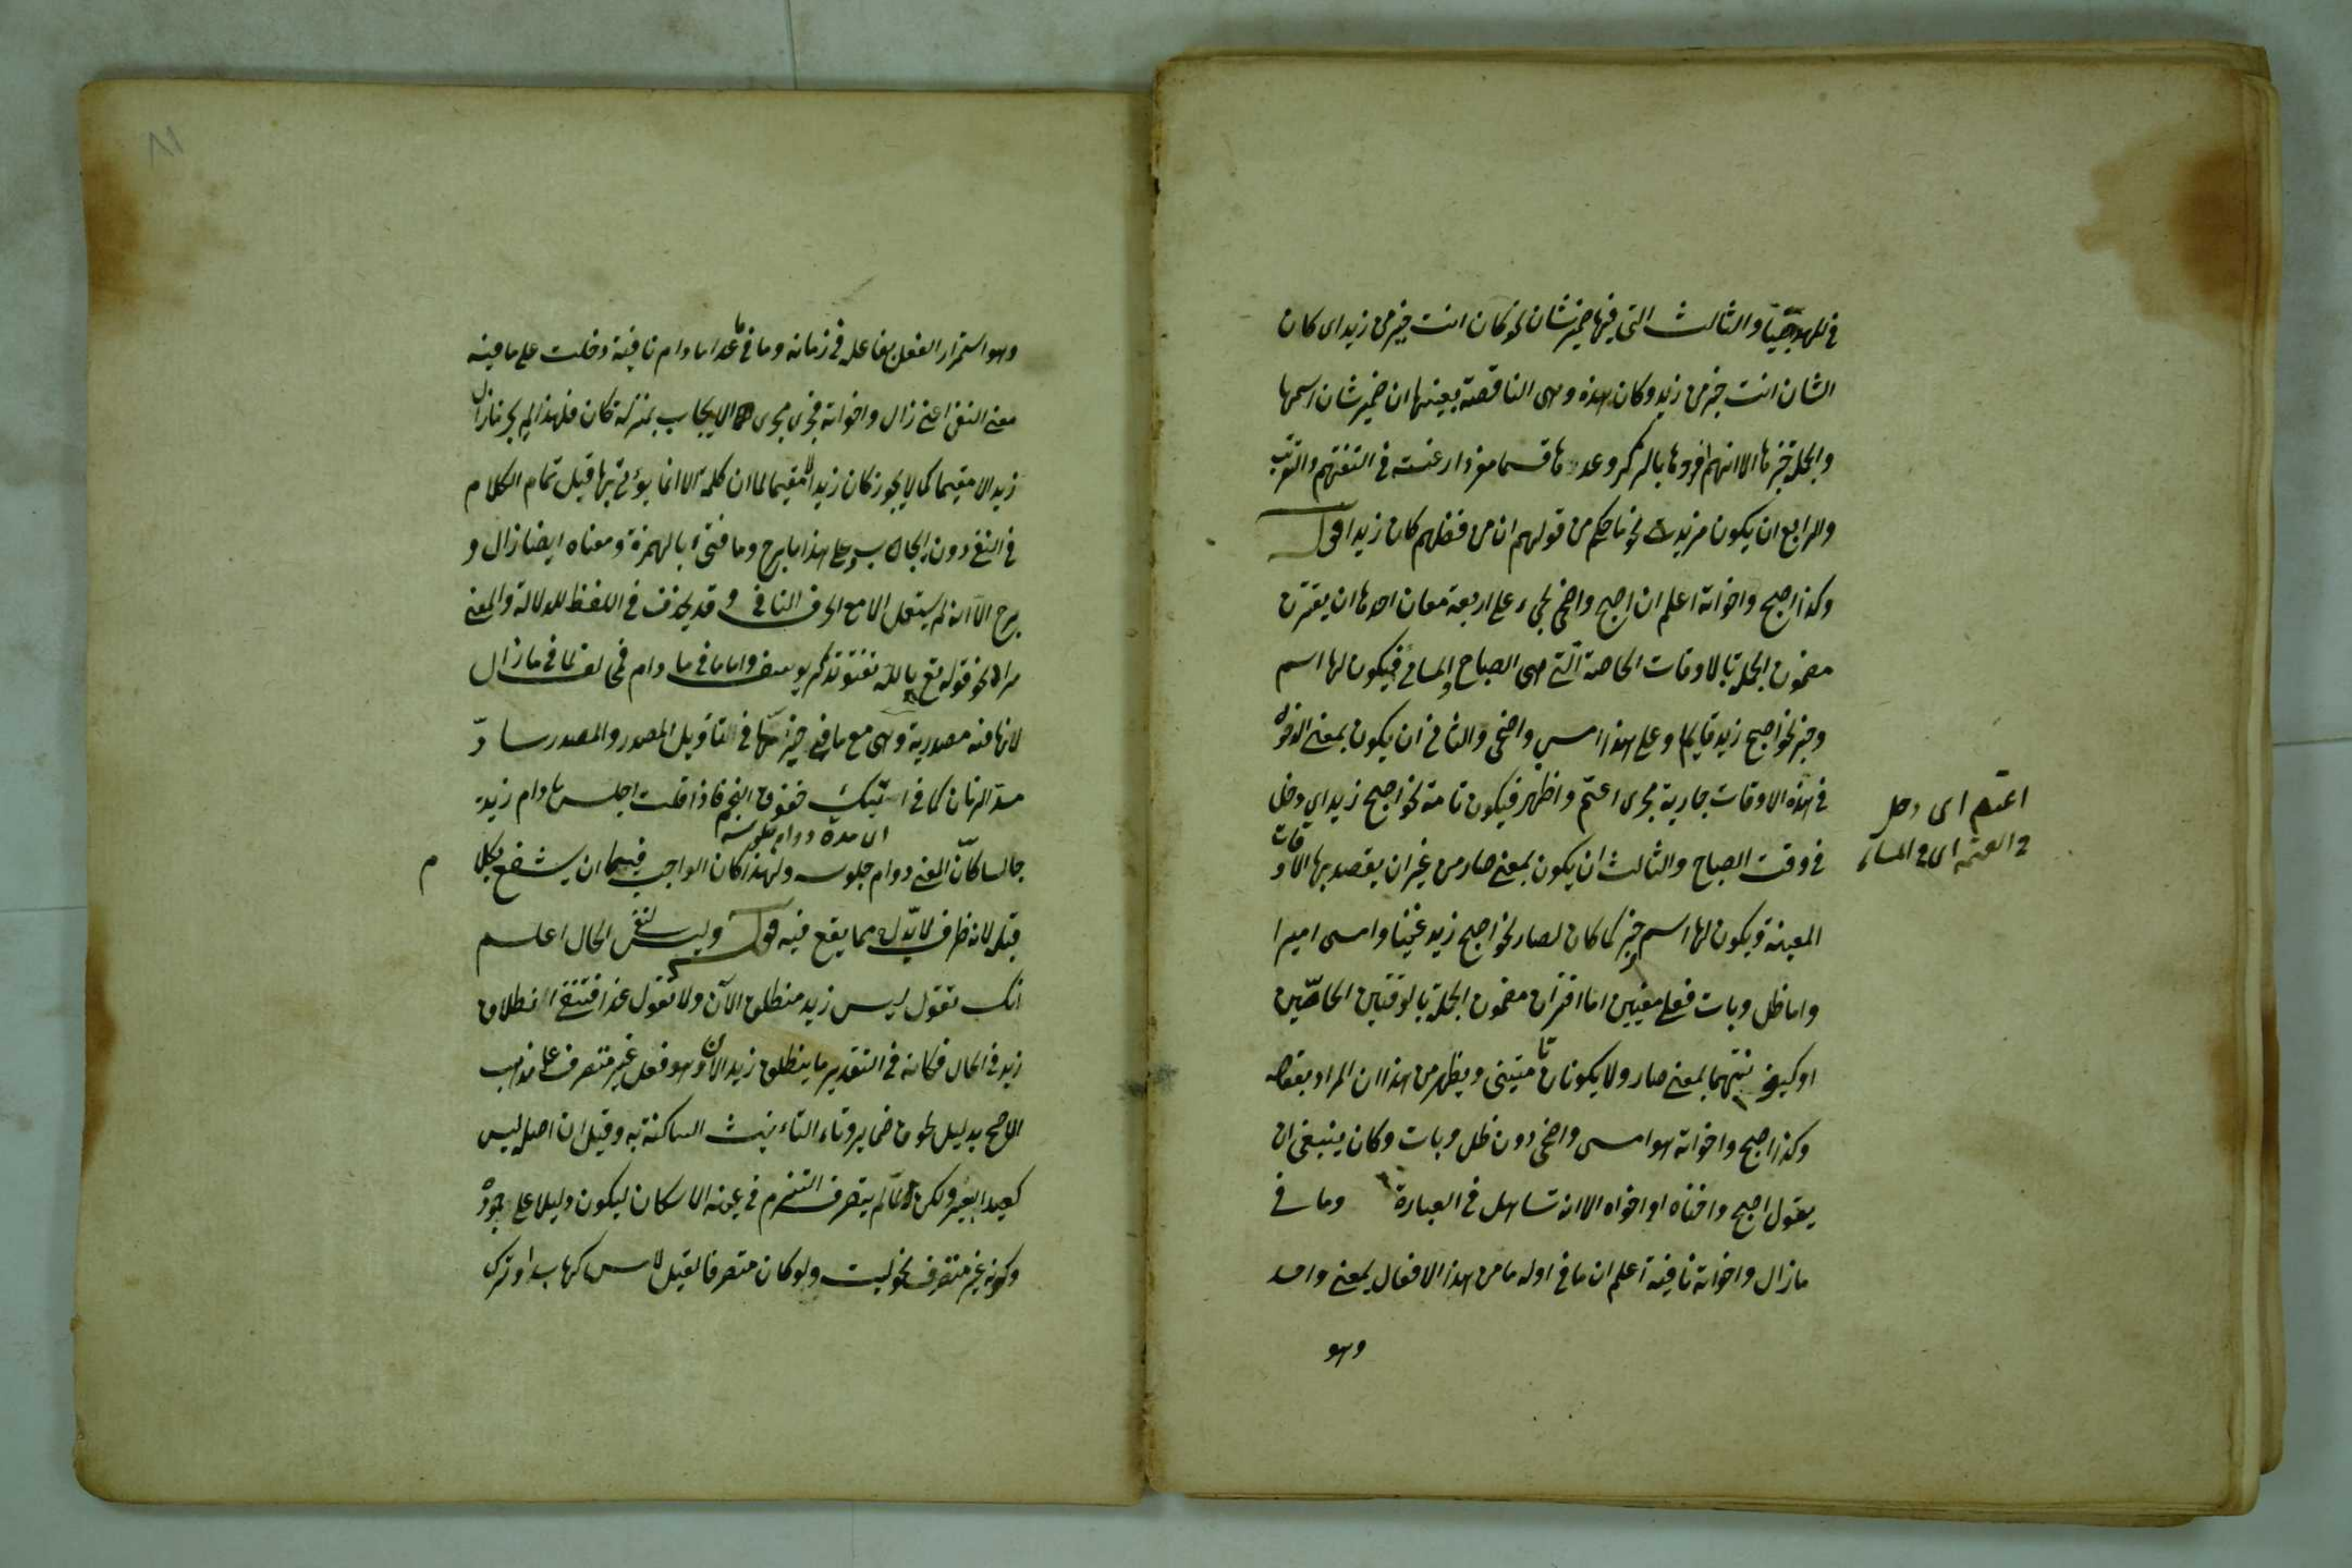 في المهد صبيا والثالث التي فيها ضمير شان نحو كان انت خير من زيد اى كان
الشان انت خير من زيد وكان هذه وهى الناقصة بعينها ان ضمير شان اسمها
والجملة خبرها الا انهم افردوها بالذكر وعدوها قسما مفردا رغبته في التفهيم والتقريب
والرابع ان يكون مزيدة نحو ما حكم من قولهم ان من فضلهم كان زيدا قوله
وكذا اصبح واخواته اعلم ان اصبح واضحى يجىء على اربعة معان احدها ان يقترن
مضمون الجملة بالاوقات الخاصة التي هى الصباح والمسائ فيكون لها اسم
وخبر نحو اصبح زيد قايما وعلى هذا امسى واضحى والثاني ان يكون بمعنى الدخول
في هذه الاوقات جارية مجرى اعتم واظهر فيكون تامة نحو اصبح زيد اي دخل
في وقت الصباح والثالث ان يكون بمعنى صار من غير ان يقصد بها الاوقات
المعينة ويكون لها اسم وخبر كما كان لصار نحو اصبح زيد غنيا وامسى اميرا
واما ظل وبات فعلى معنيين اما اقتران مضمون الجملة بالوقتين الخاصين
او كينونتهما بمعنى صار ولا يكونان تامتين ويظهر من هذا ان المراد بقوله
وكذا اصبح واخواته هو امسى واضحى دون ظل وبات وكان ينبغى ان
يقول اصبح واختاه او اخواه الا انه تساهل في العبارة وما في
مازال واخواته نافية اعلم ان ما في اوله ما من هذا الافعال بمعنى واحد
وهو
اعتم اى دخل
في العتمة اى في المساء
وهو استمرار الفعل بفاعله في زمانه وما في ما عدا مادام نافية دخلت على ما فيه
معنى النفى اعنى زال واخواته فجرى مجرى الايجاب بمنزلة كان فلهذا لم يجز مازال
زيد الا مقيما كما لا يجوز كان زيد الا مقيما لما ان كلمة الا انما يؤتى بها قبل تمام الكلام
في النفى دون الايجاب وعلى هذا ما برح وما فتىء بالهمزة ومعناه ايضا زال و
برح الا انه لم يستعمل الا مع الحرف النافي وقد يحذف في اللفظ للدلالة والمعنى
مراد نحو قوله تع تالله تفتؤ تذكر يوسف واما ما في ما دام فمخالف لما في مازال
لانها فيه مصدرية وهى مع ما في حيزها في التاويل المصدر والمصدر ساد
مسد الزمان كما في اتيتك خفوق النجم فاذا قلت اجلس مادام زيد
اى مدة دوام جلوسه
جالسا كان المعنى دوام جلوسه ولهذا كان الواجب فيهما ان يشفع بكلام
قبله لانه ظرف لا بد له مما يقع فيه قوله وليس لنفى الحال اعلم
انك تقول ليس زيد منطلق الآن ولا تقول غدا فتنفى انطلاق
زيد في الحال فكانه في التقدير ما ينطلق زيد الآن وهو فعل غير متصرف على مذهب
الاصح بدليل لحوق ضماير وتاء التانيث الساكنة به وقيل ان اصل ليس
كصيد البعير ولكن لما لم يتصرف التزم في عينه الاسكان ليكون دليلا على جموده
وكونه غير متصرف نحو ليت ولو كان متصرفا لقيل لاس كهاب او ترك